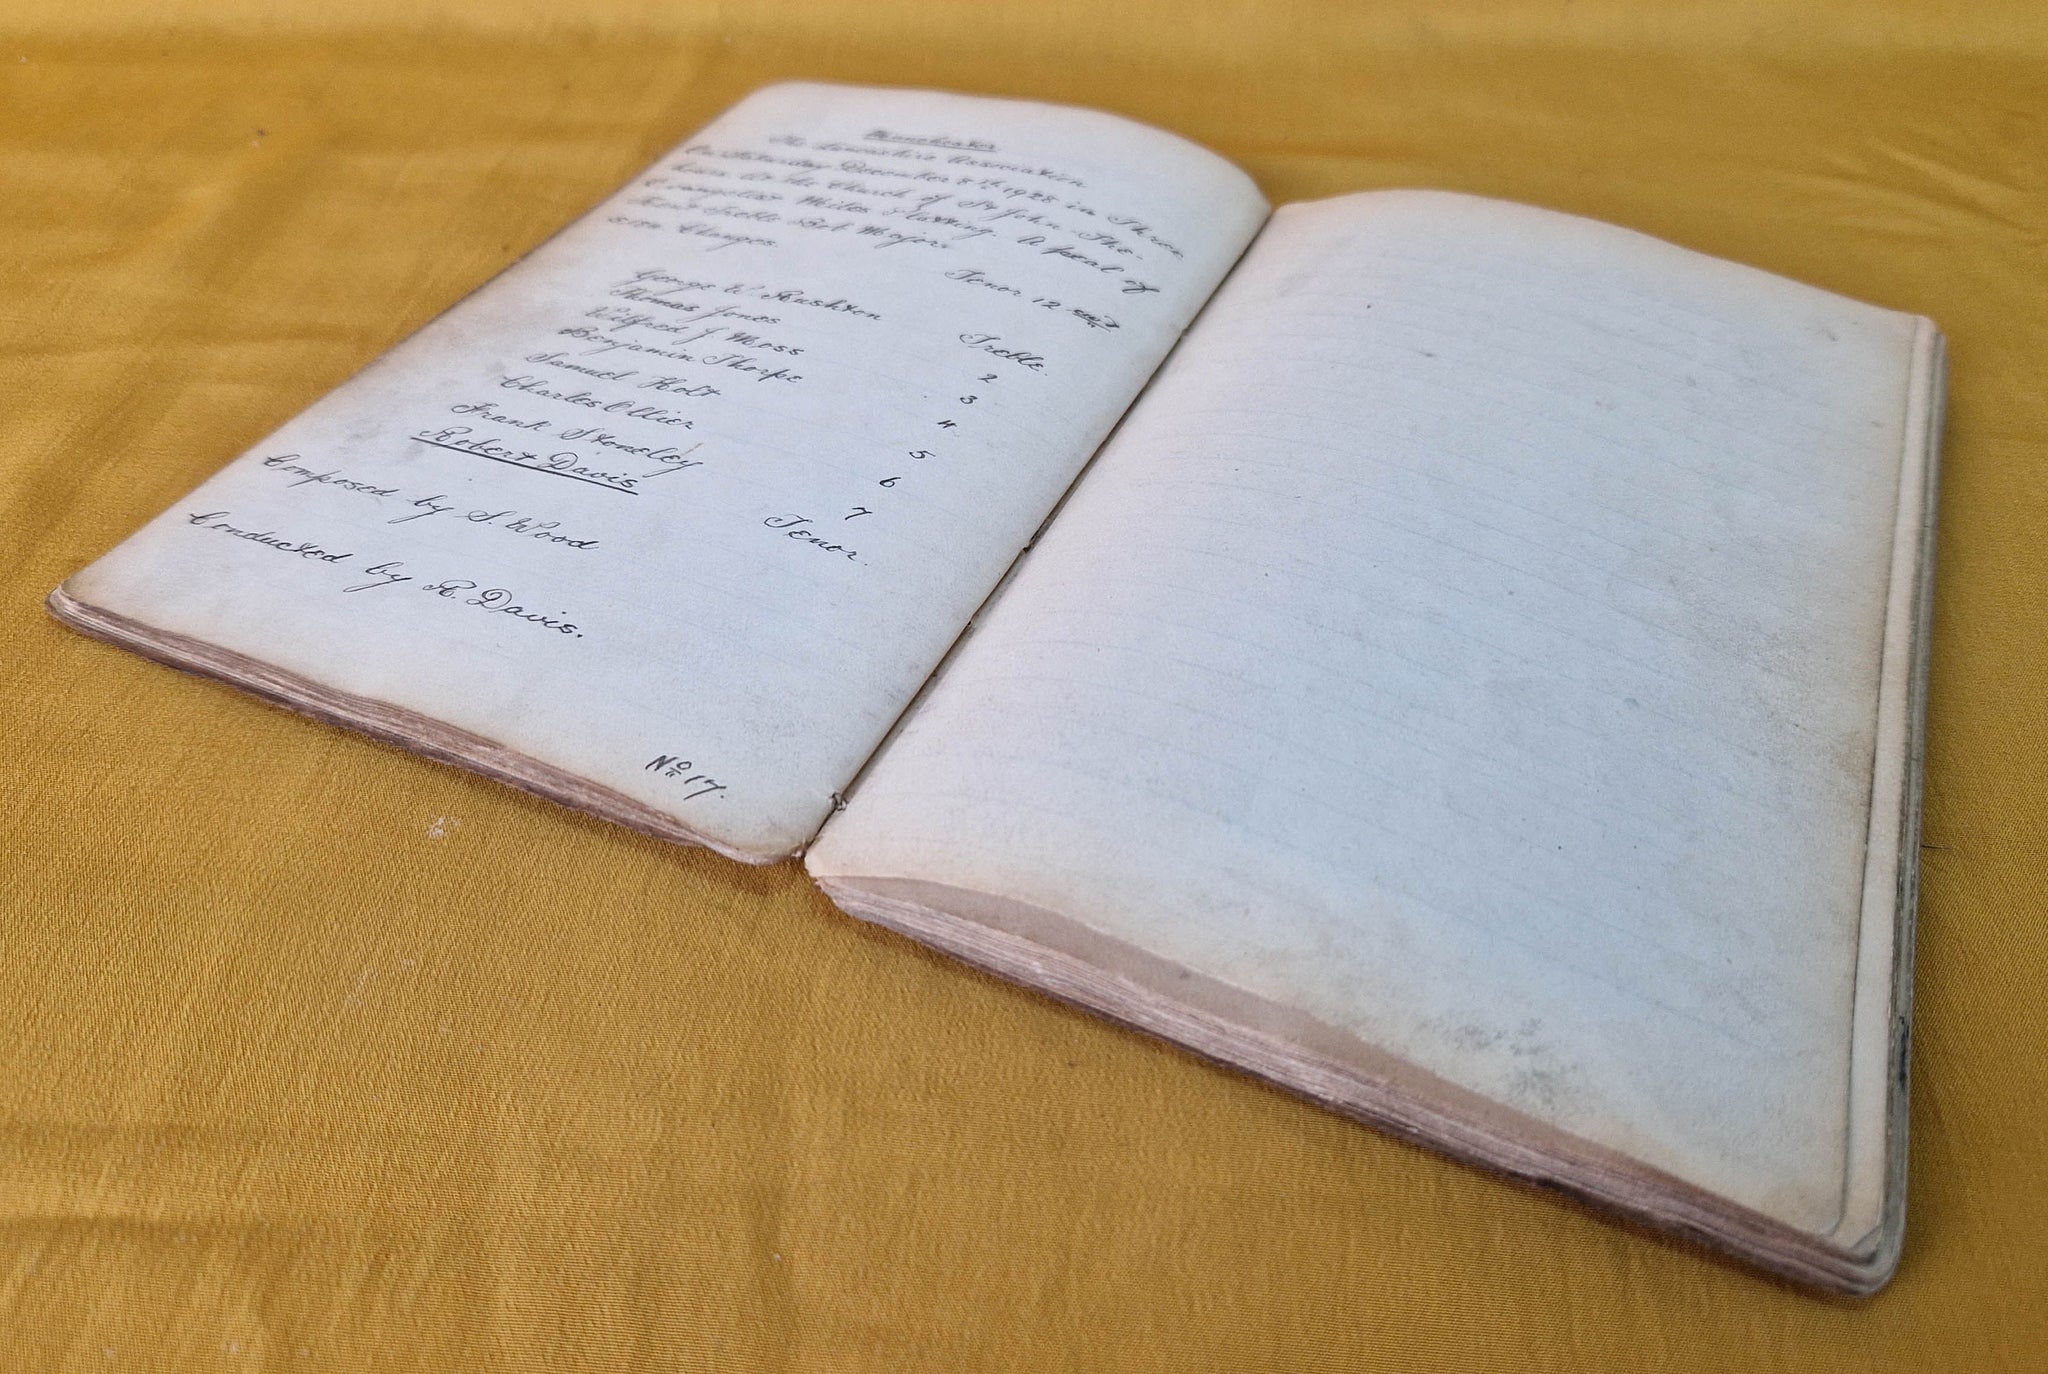 Manchester
The Lancashire Association
On Saturday December 8th 1928 in Three
Hours At the Church of St John-The-
Evangelist Miles Platting A peal of
Kent Treble Bob Major:
Changes Tenor 12 cwt
George W. Rushton Treble.
Thomas Jones 2
Wilfred J Moss 3
Benjamin Thorpe 4
Samuel Holt 5
Charles Ollier 6
Frank Stoneley 7
Robert Davis Tenor.
Composed by S. Wood
Conducted by R. Davis.
No 17.